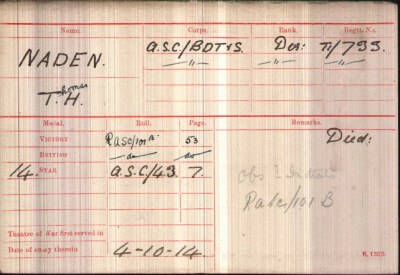 Name. Corps. Rank. Regtl. No.
NADEN. A.S.C/BDT&S. Dvr: T1/793.
Thomas —"— —"— —"—
T.H.
Medal. Roll. Page. Remarks.
VICTORY RASC/101 B. 53 Died:
BRITISH do do
14. STAR A.S.C/43. 7.
RASC/101 B
Theatre of War first served in
Date of entry therein 4-10-14.
K. 1380.